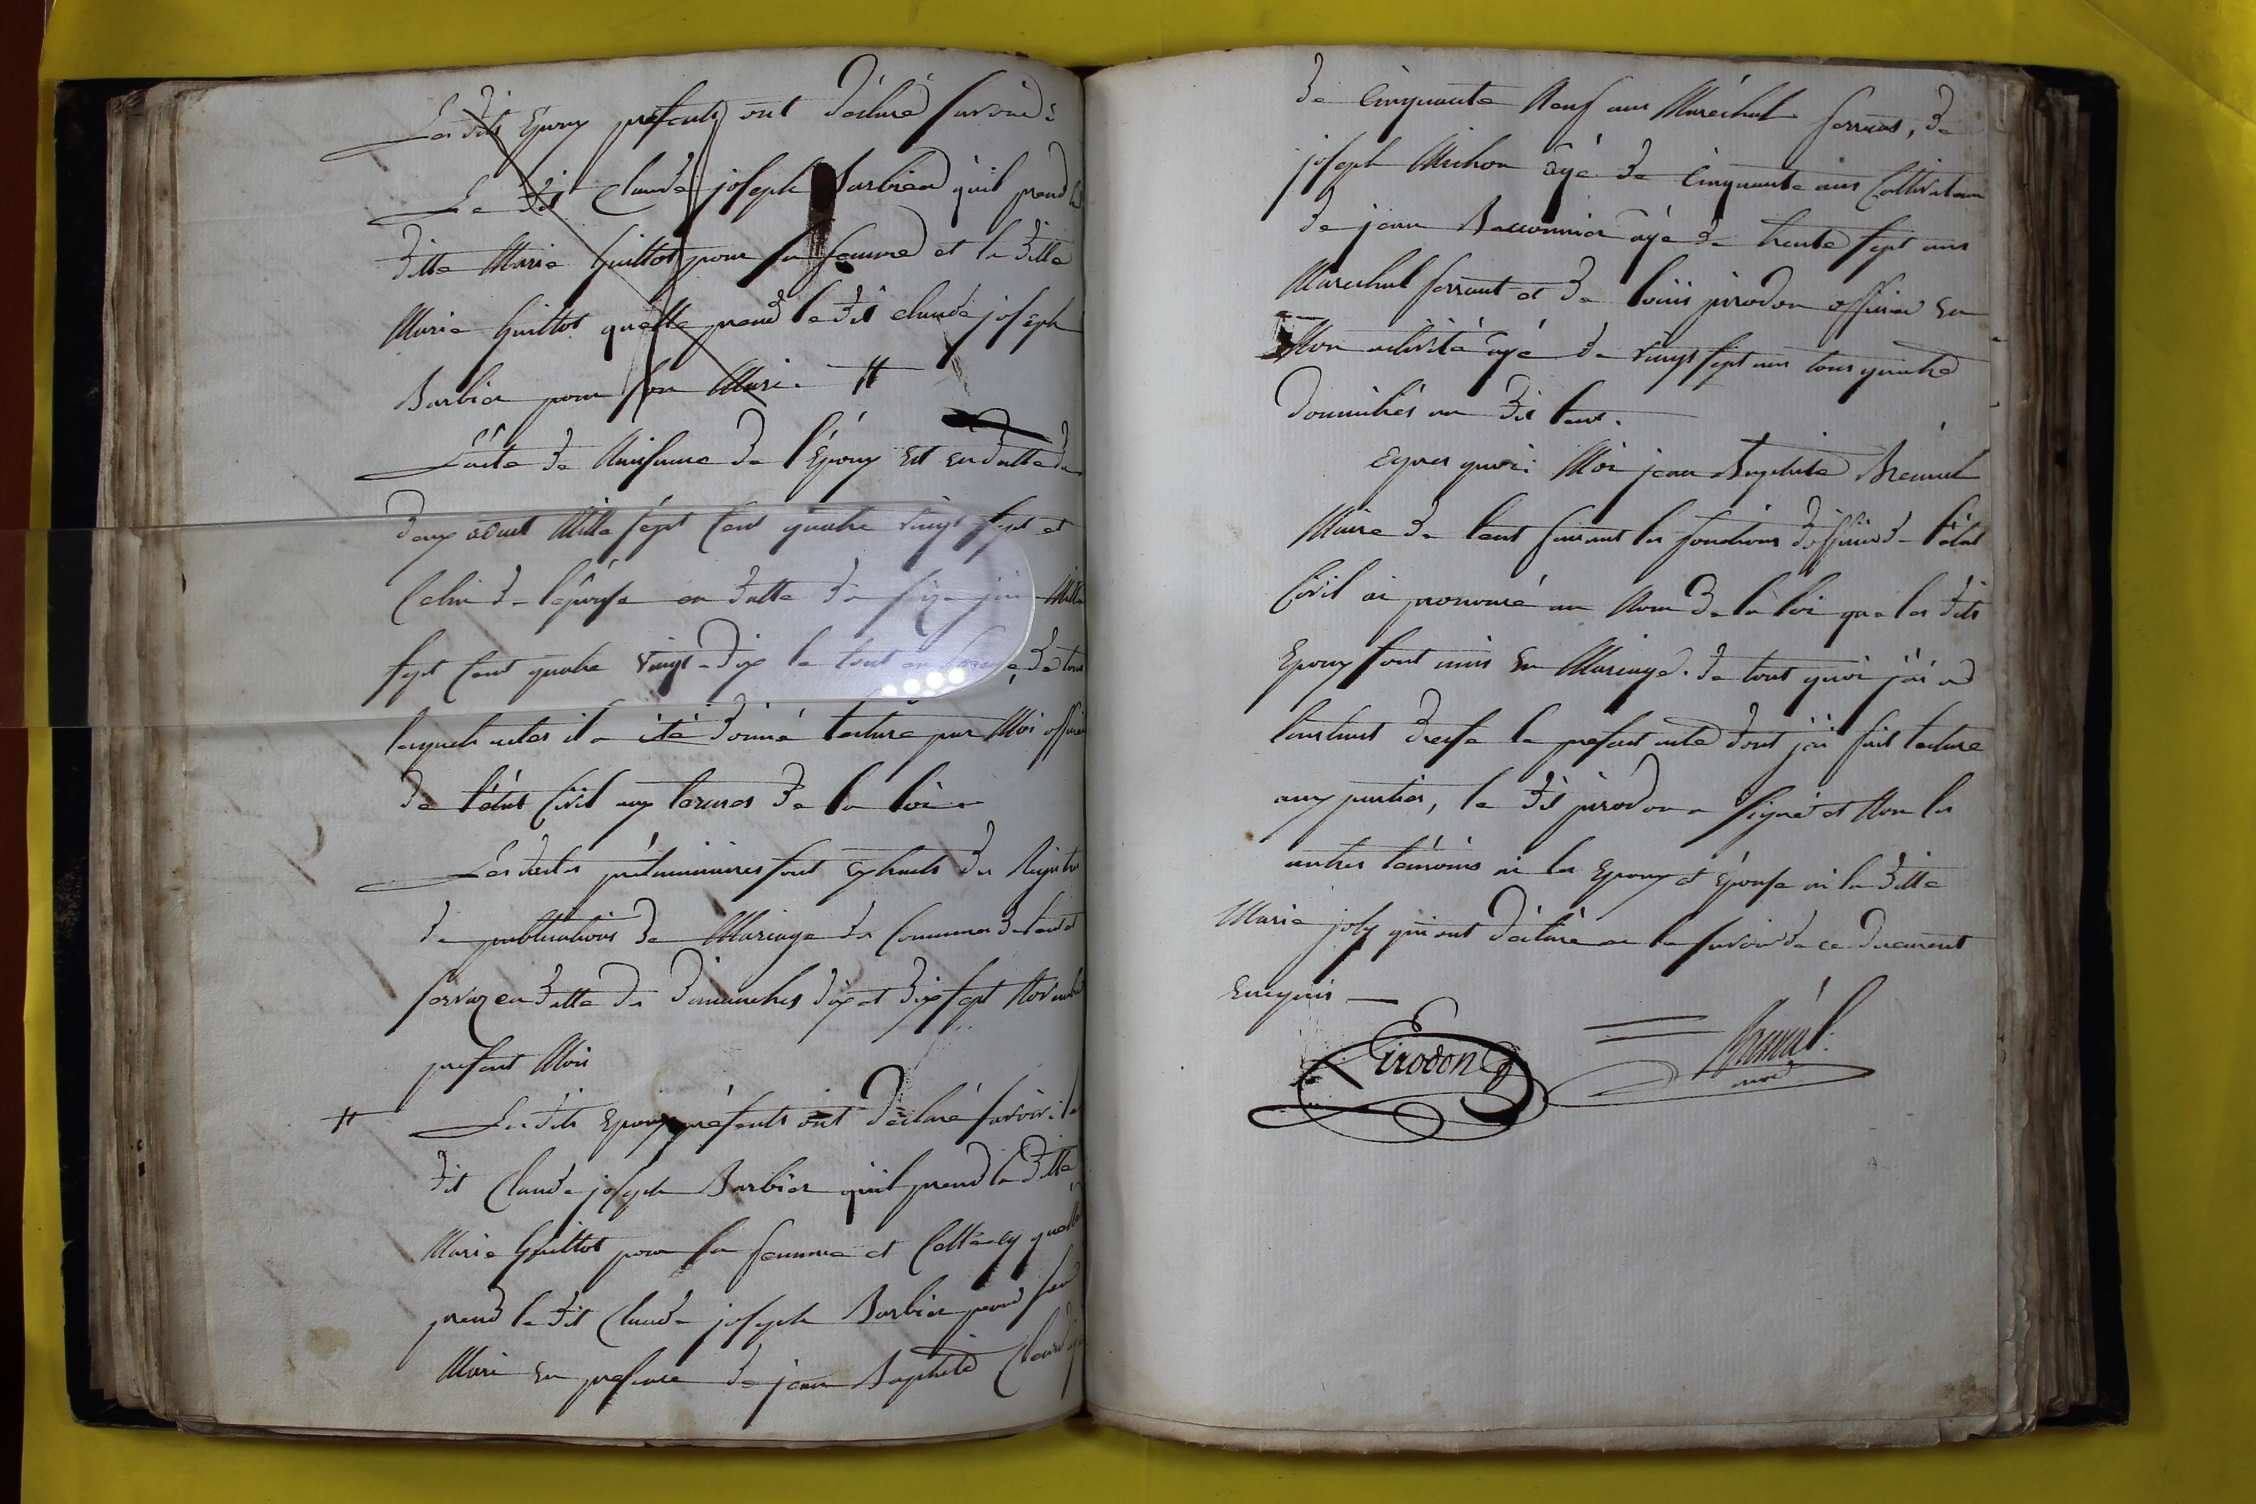 Les dits Epoux présents ont déclaré savoir :
Le dit Claude joseph Barbier qu'il prend la
ditte Marie Guillot pour sa femme et la ditte
Marie Guillot quelle prend le dit claude joseph
Barbier pour son Mari. #
L'acte de Naissance de l'Epoux est en datte du
deux aout Mille sept Cent quatre vingt sept et
Celui de l'epouse en datte du seize juin Mille
sept Cent quatre vingt-dix le tout en forme, De tous
lesquels actes il a été donné lecture par Moi officier
de l'état Civil aux termes de la loi.
Les actes préliminaires sont extraits des Registres
de publications de Mariage des Communes de Lent et
servaz en datte des Dimanches dix et dix sept Novembre
présent Mois
# Les dits Epoux présents ont déclaré savoir : le
dit Claude joseph Barbier qu'il prend la ditte
Marie Guillot pour sa femme et Celle cy quelle
prend le dit Claude joseph Barbier pour son
Mari en présence de jean Baptiste
de Cinquante Neuf ans Maréchal ferrant, de
joseph Michon agé de Cinquante ans Cultivateur
de jean agé de trente sept ans
Marechal ferrant et de louis pirodon officier en
Non activité agé de vingt sept ans tous quatre
domiciliés au dit lent.
Apres quoi Moi jean Baptiste
Maire de lent faisant les fonctions d'officier de l'état
Civil ai prononcé au Nom de la loi que les dits
Epoux sont unis en Mariage. de tout quoi j'ai a
l'instant dressé le présent acte dont j'ai fait lecture
aux parties, le dit pirodon a signé et Non les
autres témoins ni les Epoux et épouse ni la ditte
Marie joly qui ont déclaré ne le savoir de ce duement
Enquis
Pirodon